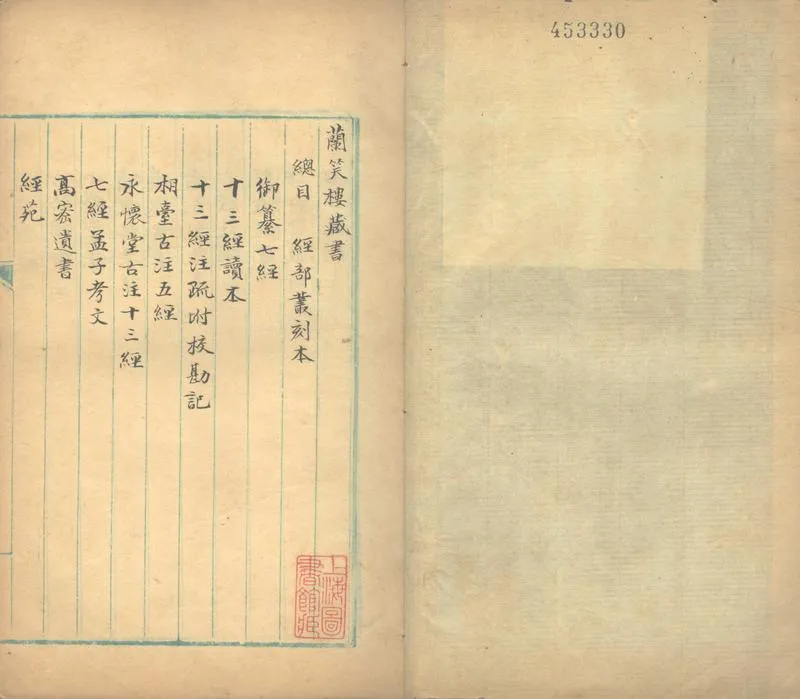 453330
蘭笑樓藏書
總目　經部叢刻本
御纂七經
十三經讀本
十三經注疏附校勘記
相臺古注五經
永懷堂古注十三經
七經孟子考文
高密遺書
經苑
上海圖
書館藏